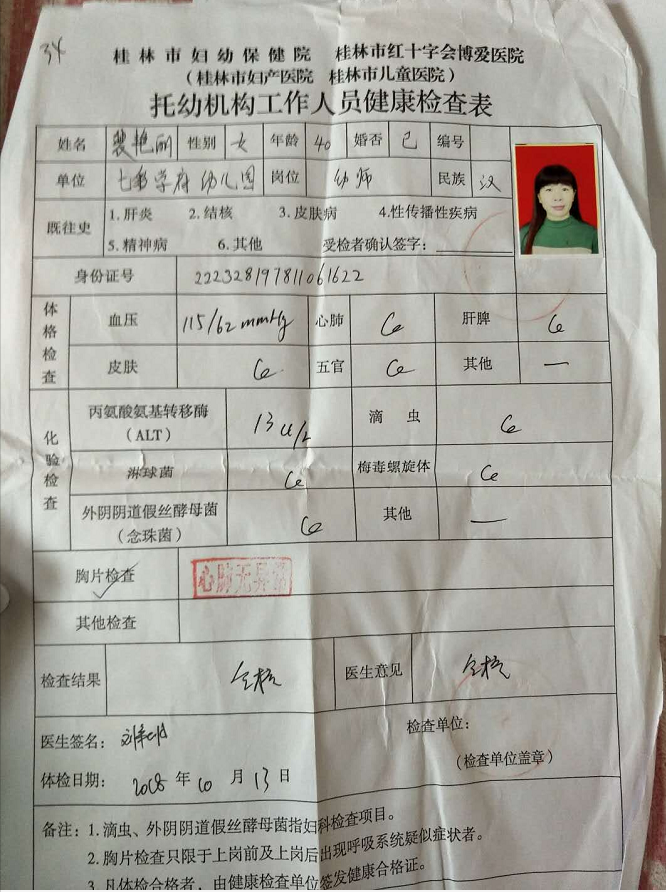 34
桂林市妇幼保健院 桂林市红十字会博爱医院
（桂林市妇产医院 桂林市儿童医院）
托幼机构工作人员健康检查表
姓名 裴艳丽 性别 女 年龄 40 婚否 已 编号
单位 七彩学府幼儿园 岗位 幼师 民族 汉
既往史 1.肝炎 2.结核 3.皮肤病 4.性传播性疾病
5.精神病 6.其他 受检者确认签字：
身份证号 222328197811061622
体格检查 血压 115/62mmHg 心肺 肝脾
皮肤 五官 其他 —
化验检查 丙氨酸氨基转移酶（ALT） 13 u/L 滴虫
淋球菌 梅毒螺旋体
外阴阴道假丝酵母菌（念珠菌） 其他 —
胸片检查 心肺无异常
其他检查
检查结果 合格 医生意见 合格
医生签名： 检查单位：
（检查单位盖章）
体检日期： 2018 年 10 月 13 日
备注：1.滴虫、外阴阴道假丝酵母菌指妇科检查项目。
2.胸片检查只限于上岗前及上岗后出现呼吸系统疑似症状者。
3.凡体检合格者，由健康检查单位签发健康合格证。